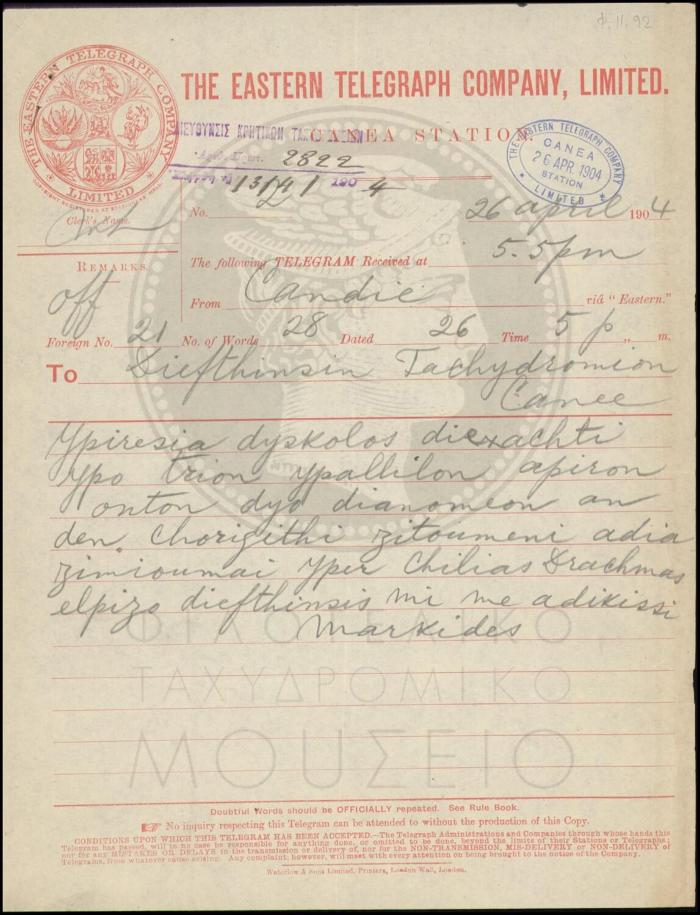 Φ.11.92
THE EASTERN TELEGRAPH COMPANY, LIMITED.
THE EASTERN TELEGRAPH COMPANY LIMITED
CANEA STATION.
ΔΙΕΥΘΥΝΣΙΣ ΚΡΗΤΙΚΩΝ
2822
13/4/ 190 4
THE EASTERN TELEGRAPH COMPANY LIMITED
CANEA
26 APR. 1904
STATION
Clerk's Name.
No.
26 april 190 4
REMARKS.
off
The following TELEGRAM Received at 5.5pm
From Candie viâ "Eastern."
Foreign No. 21 No. of Words 28 Dated 26 Time 5 p m.
To Diefthinsin Tachydromion
Canee
Ypiresia dyskolos diexachti
ypo trion ypallilon apiron
onton dyo dianomeon an
den chorigithi zitoumeni adia
zimioumai yper chilias Drachmas
elpizo diefthinsis mi me adikissi
Markides
ΦΙΛΟΤΕΛΙΚΟ
ΤΑΧΥΔΡΟΜΙΚΟ
ΜΟΥΣΕΙΟ
Doubtful Words should be OFFICIALLY repeated. See Rule Book.
☞ No inquiry respecting this Telegram can be attended to without the production of this Copy.
CONDITIONS UPON WHICH THIS TELEGRAM HAS BEEN ACCEPTED.—The Telegraph Administrations and Companies through whose hands this
Telegram has passed, will in no case be responsible for anything done, or omitted to be done, beyond the limits of their Stations or Telegraphs;
nor for any MISTAKES OR DELAYS in the transmission or delivery of, nor for the NON-TRANSMISSION, MIS-DELIVERY or NON-DELIVERY of
Telegrams, from whatever cause arising. Any complaint, however, will meet with every attention on being brought to the notice of the Company.
Waterlow & Sons Limited, Printers, London Wall, London.